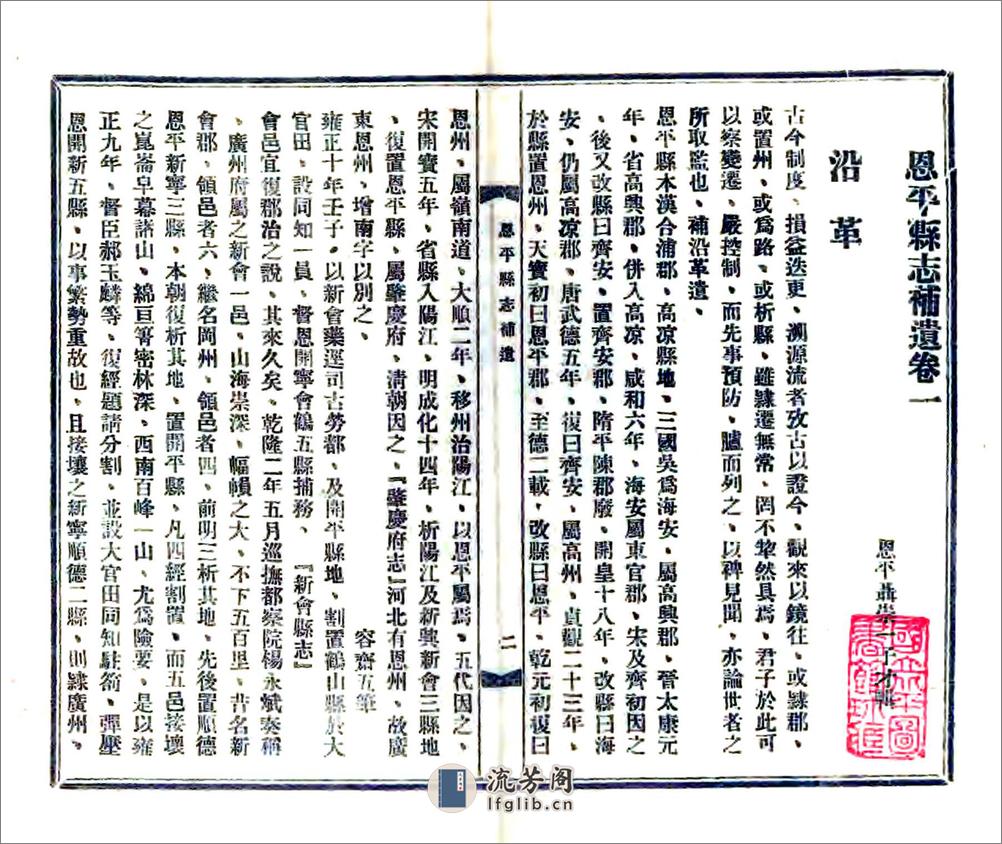 恩平縣志補遺卷一
恩平聶崇一子才輯
沿革
古今制度、損益迭更、溯源流者攷古以證今、觀來以鏡往、或隸郡、
或置州、或爲路、或析縣、雖隸遷無常、罔不犂然具焉、君子於此可
以察變遷、嚴控制、而先事預防、臚而列之、以裨見聞、亦論世者之
所取監也、補沿革遺、
恩平縣本漢合浦郡、高凉縣地、三國吳爲海安、屬高興郡、晉太康元
年、省高興郡、併入高凉、咸和六年、海安屬東官郡、宋及齊初因之
、後又改縣曰齊安、置齊安郡、隋平陳郡廢、開皇十八年、改縣曰海
安、仍屬高凉郡、唐武德五年、復曰齊安、屬高州、貞觀二十三年、
於縣置恩州、天寶初曰恩平郡、至德二載、改縣曰恩平、乾元初復曰
恩平縣志補遺
二
恩州、屬嶺南道、大順二年、移州治陽江、以恩平屬焉、五代因之、
宋開寶五年、省縣入陽江、明成化十四年、析陽江及新興新會三縣地
、復置恩平縣、屬肇慶府、淸朝因之、『肇慶府志』河北有恩州、故廣
東恩州、增南字以別之、
容齋五筆
雍正十年壬子、以新會藥逕司古勞都、及開平縣地、割置鶴山縣於大
官田、設同知一員、督恩開寧會鶴五縣捕務、
『新會縣志』
會邑宜復郡治之說、其來久矣、乾隆二年五月巡撫都察院楊永斌奏稱
、廣州府屬之新會一邑、山海崇深、幅㡓之大、不下五百里、昔名新
會郡、領邑者六、繼名岡州、領邑者四、前明三析其地、先後置順德
恩平新寧三縣、本朝復析其地、置開平縣、凡四經割置、而五邑接壤
之崑崙皁幕諸山、綿亘箐密林深、西南百峰一山、尤爲險要、是以雍
正九年、督臣郝玉麟等、復經題請分割、並設大官田同知駐箚、彈壓
恩開新五縣、以事繁勢重故也、且接壤之新寧順德二縣、則隸廣州、
流芳阁
lfglib.cn